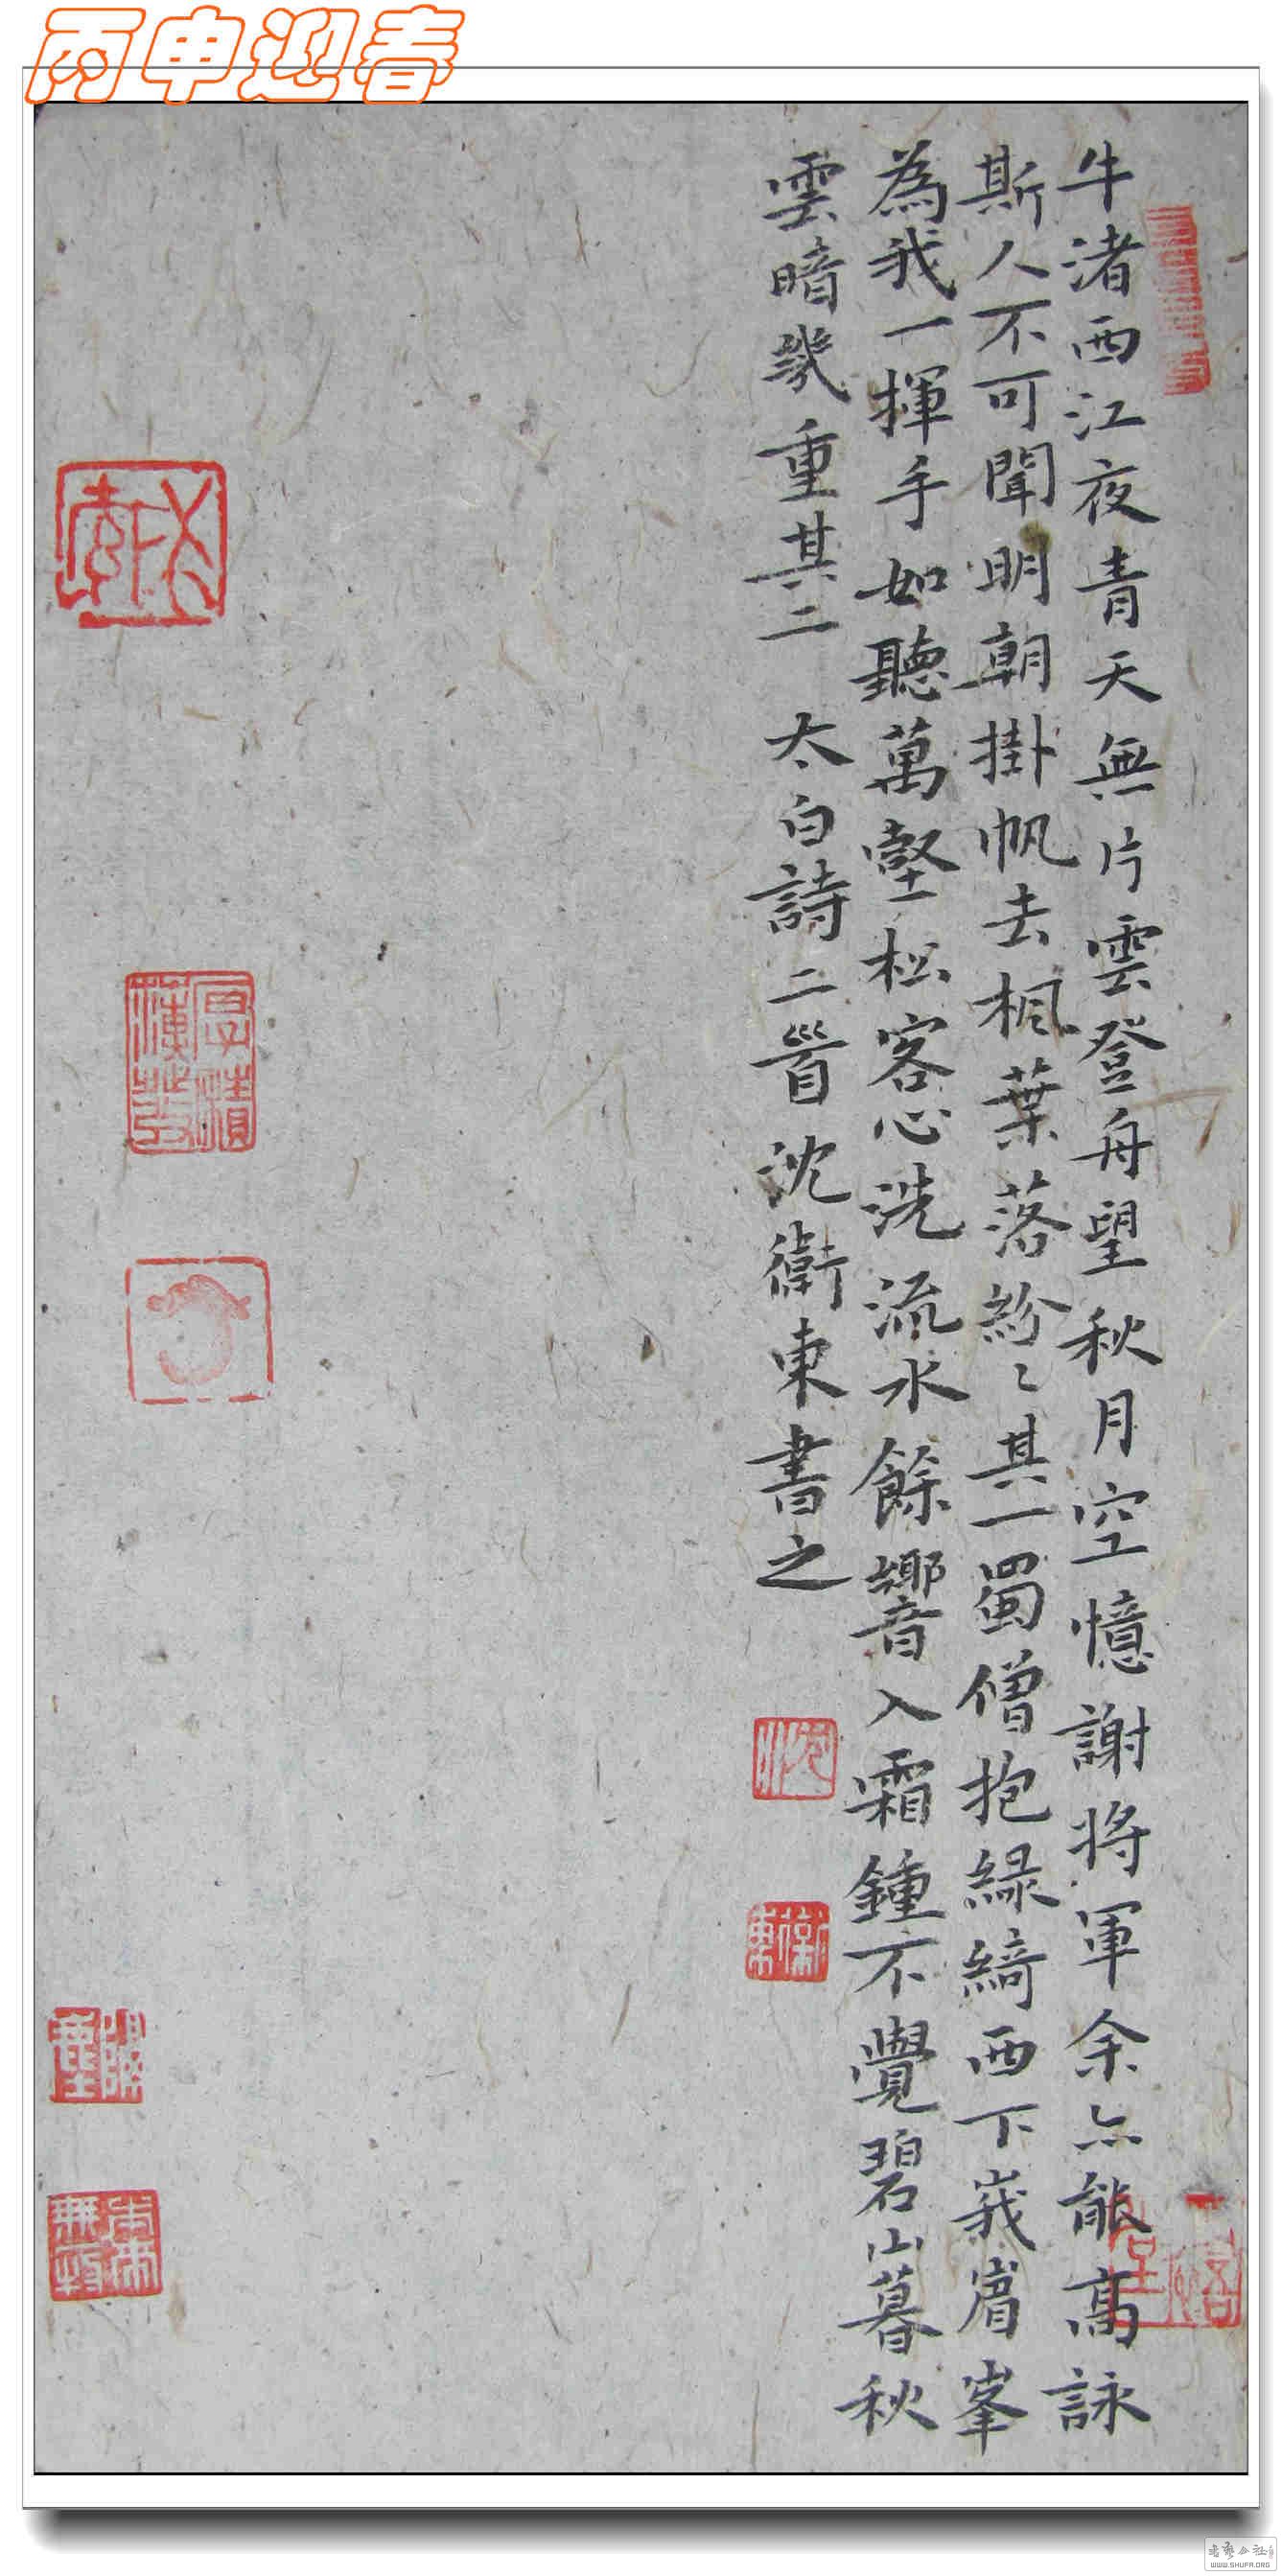 丙申迎春
牛渚西江夜青天無片雲登舟望秋月空憶謝将軍余亦能高詠
斯人不可聞明朝掛帆去楓葉落紛〻其一蜀僧抱緑綺西下峩嵋峯
為我一揮手如聽萬壑松客心洗流水餘響入霜鍾不覺碧山暮秋
雲暗幾重其二 太白詩二首 沈衛東書之
沈
衛東
厚積薄發
WWW.SHUFA.ORG